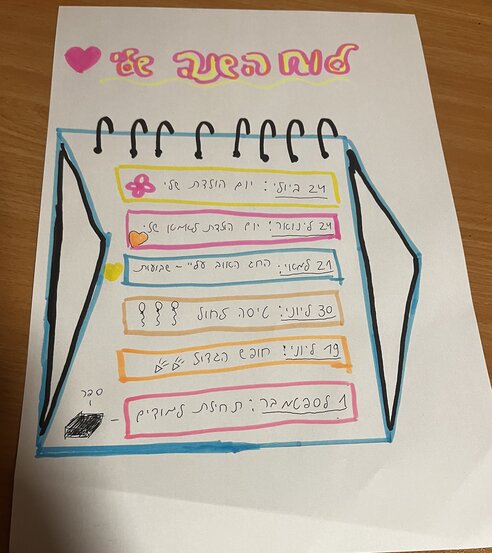 לוח השנה שלי
24 ביולי: יום הולדת שלי
24 לינואר: יום הולדת לאמא שלי
21 למאי: החג האוב עליי - שבועות
30 ליוני: טיסה לחול
19 ליוני: חופש הגדול
ספר
1 לספטמבר: תחילת למודים